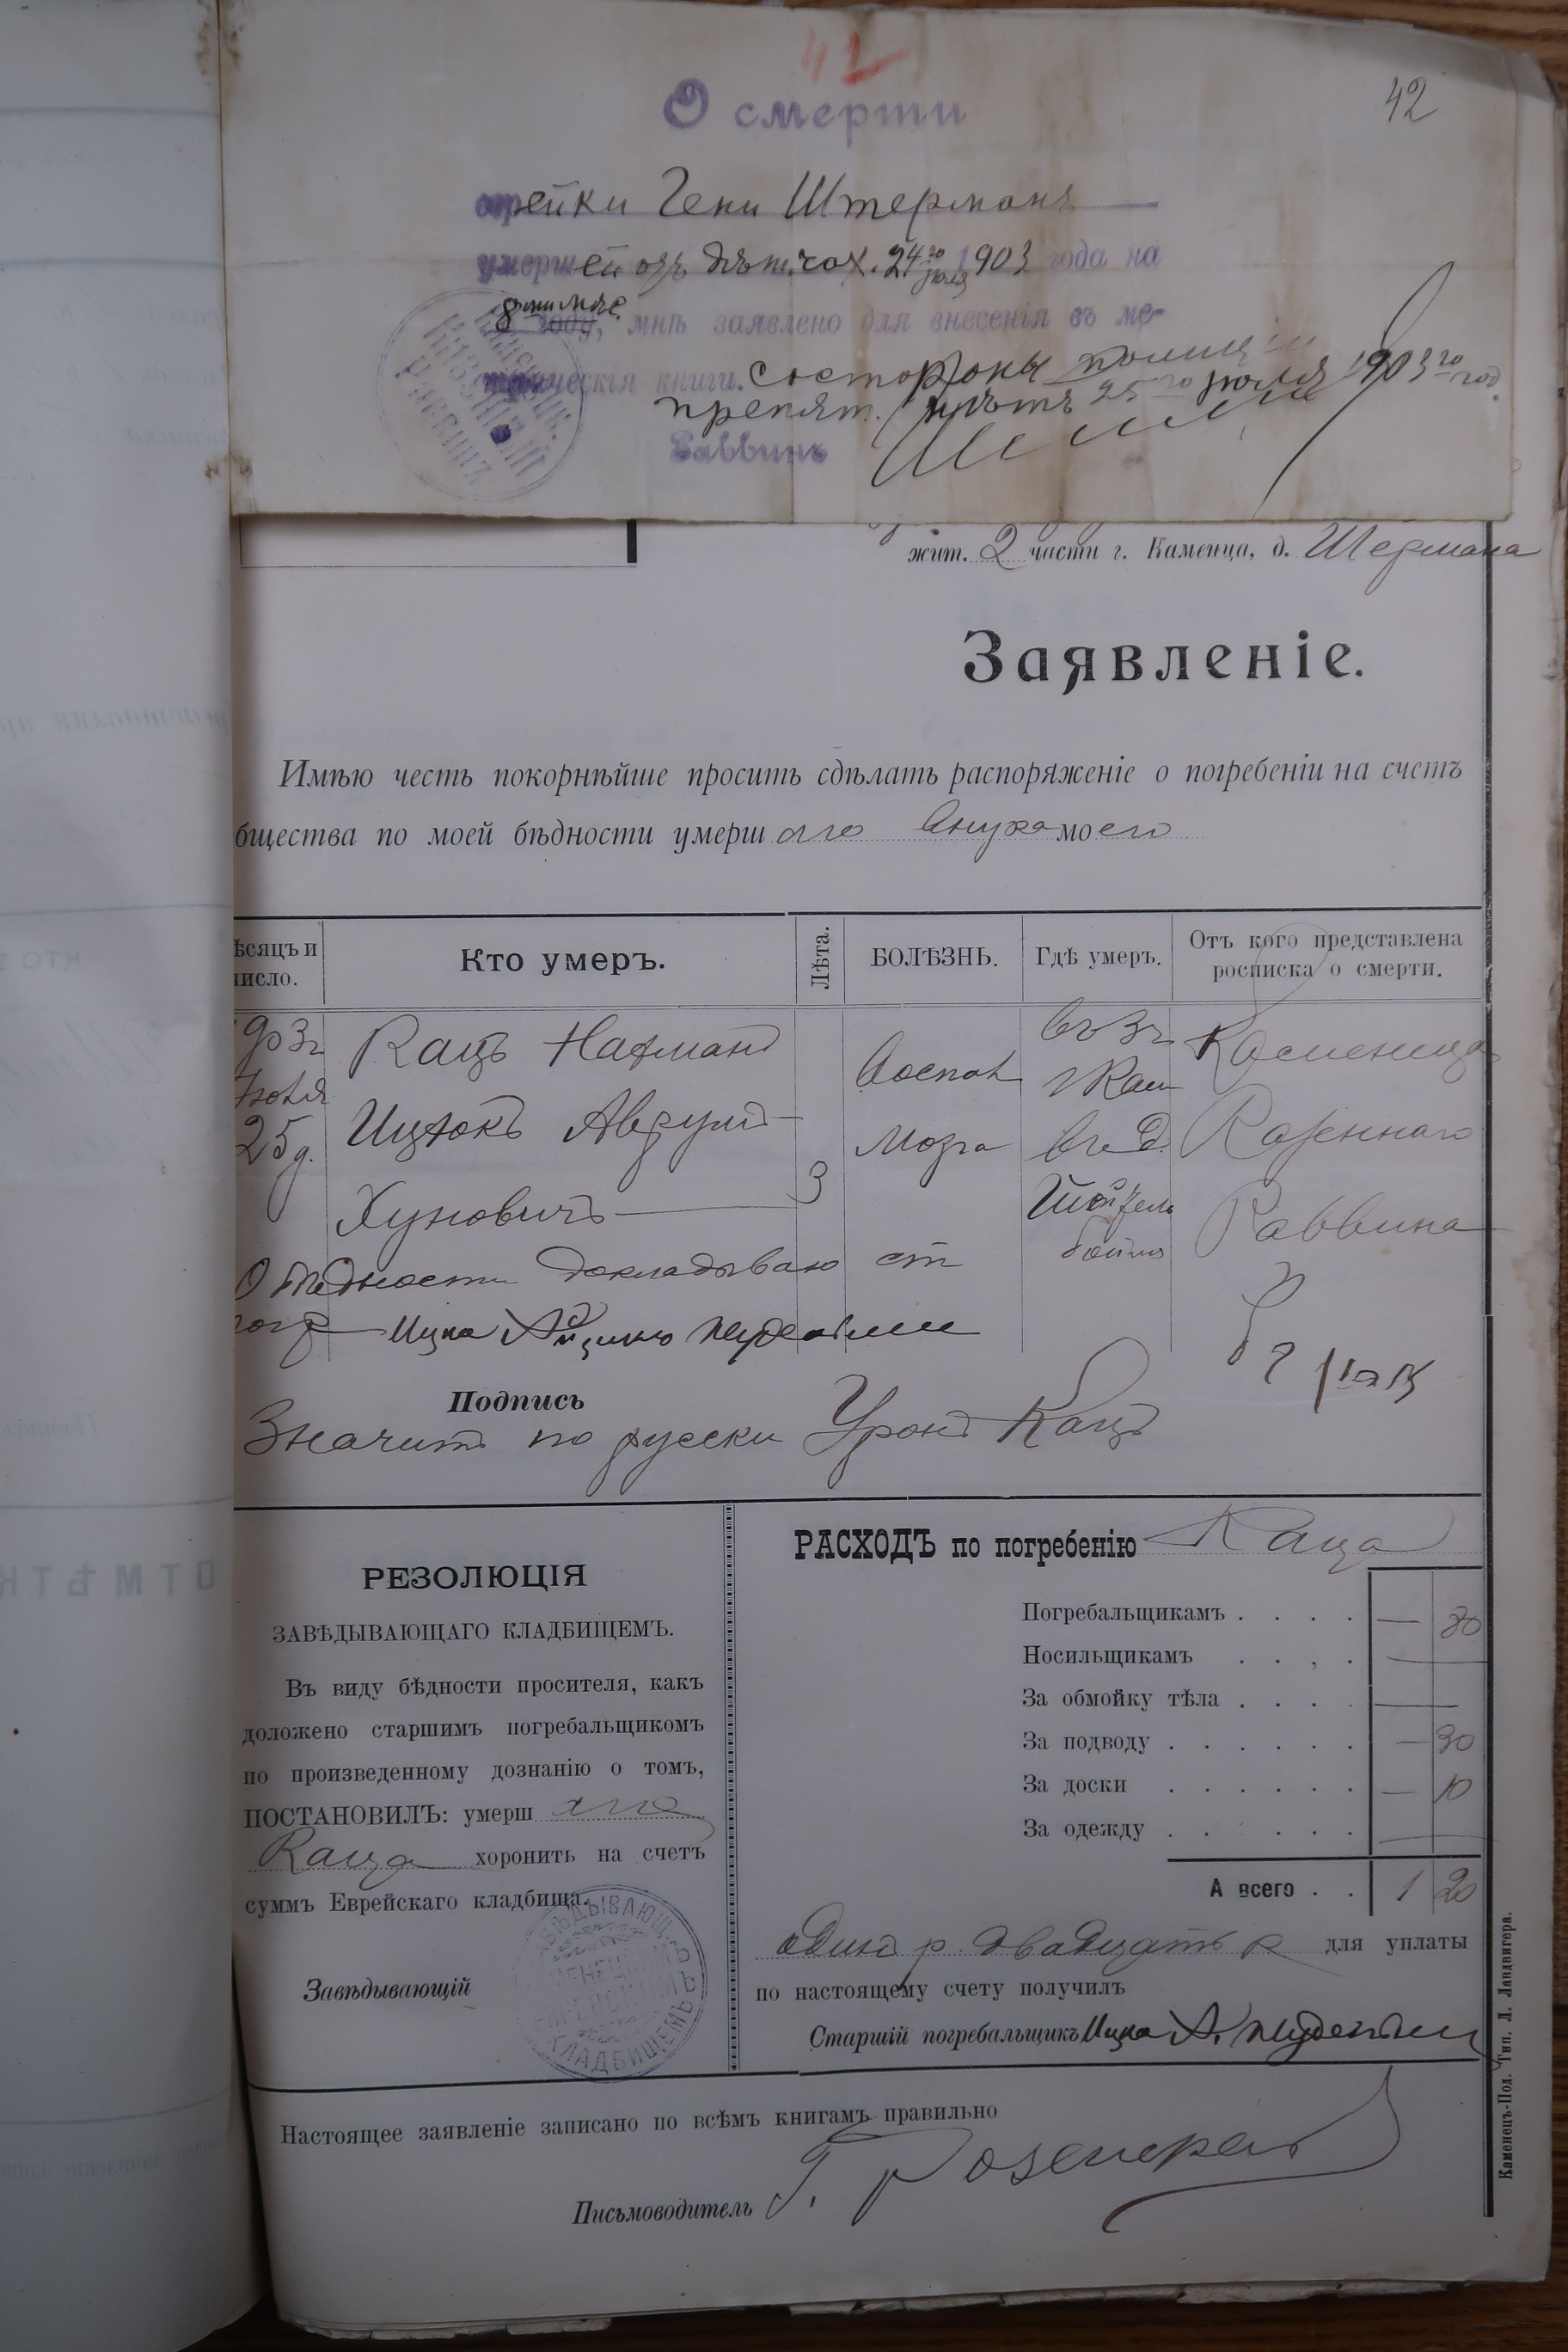 42
42
О смерти
еврейки Гени Штерманъ
умершей отъ дѣт. чах. 24го Юля 1903 года на
8 ми мѣс.
году, мнѣ заявлено для внесенія въ ме-
трическія книги. Состороны полиціи
препят. нѣтъ 25го Юля 1903го год.
Раввинъ
жит. 2 части г. Каменца, д. Шермана
Заявленіе.
Имѣю честь покорнѣйше просить сдѣлать распоряженіе о погребеніи на счетъ
бщества по моей бѣдности умерш аго внука моего
ѣсяцъ и число.
Кто умеръ.
Лѣта.
БОЛѢЗНЬ.
Гдѣ умеръ.
Отъ кого представлена росписка о смерти.
Юля 25 д.
Кацъ Нахманъ
Ицхокъ Аврумъ
Хуновичъ
3
Воспол
Мозга
Каменецъ
Казеннаго
Раввина
О бѣдности докладываю ст
погр Ицко
Подпись
Значитъ по русски Уронъ Кацъ
РЕЗОЛЮЦІЯ
ЗАВѢДЫВАЮЩАГО КЛАДБИЩЕМЪ.
Въ виду бѣдности просителя, какъ
доложено старшимъ погребальщикомъ
по произведенному дознанію о томъ,
ПОСТАНОВИЛЪ: умерш аго
Каца хоронить на счетъ
суммъ Еврейскаго кладбища.
Завѣдывающій
РАСХОДЪ по погребенію Каца
Погребальщикамъ . . . . — 80
Носильщикамъ . . , . —
За обмойку тѣла . . . . —
За подводу . . . . . . — 30
За доски . . . . . . — 10
За одежду . . . . . . —
А всего . . 1 20
одинъ р. двадцать к для уплаты
по настоящему счету получилъ
Старшій погребальщикъ Ицко А.
Настоящее заявленіе записано по всѣмъ книгамъ правильно
Письмоводитель Г.
Каменецъ-Под. Тип. Л. Ландвигера.